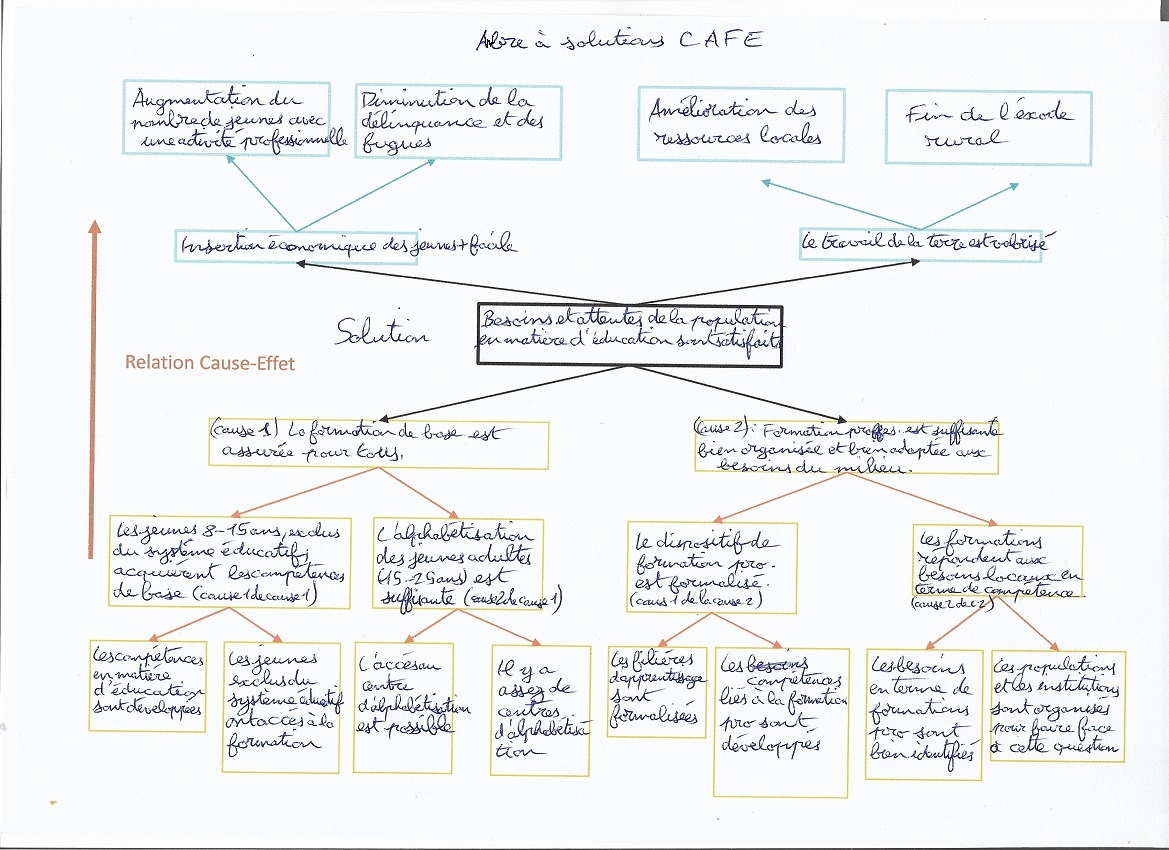 Arbre à solutions CAFE
Augmentation du
nombre de jeunes avec
une activité professionnelle
Diminution de la
délinquance et des
fugues
Amélioration des
ressources locales
Fin de l'éxode
rural
Insertion économique des jeunes + facile
Le travail de la terre est valorisé
Solution
Besoins et attentes de la population
en matière d'éducation sont satisfaits
Relation Cause-Effet
(cause 1) La formation de base est
assurée pour tous.
(cause 2) : Formation profes. est suffisante
bien organisée et bien adaptée aux
besoins du milieu.
Les jeunes 8-15 ans, exclus
du système éducatif,
acquièrent les compétences
de base (cause 1 de cause 1)
L'alphabétisation
des jeunes adultes
(15-25 ans) est
suffisante (cause 2 de cause 1)
Le dispositif de
formation pro.
est formalisé.
(caus 1 de la cause 2)
Les formations
répondent aux
besoins locaux en
terme de compétence.
(cause 2 de c2)
Les compétences
en matière
d'éducation
sont développées
Les jeunes
exclus du
système éducatif
ont accès à la
formation
L'accès au
centre
d'alphabétisation
est possible
Il y a
assez de
centres
d'alphabétisa
tion
Les filières
d'apprentissage
sont
formalisées
Les besoins
compétences
liés à la formation
pro sont
développés
Les besoins
en terme de
formations
pro sont
bien identifiés
Les populations
et les institutions
sont organisés
pour faire face
à cette question